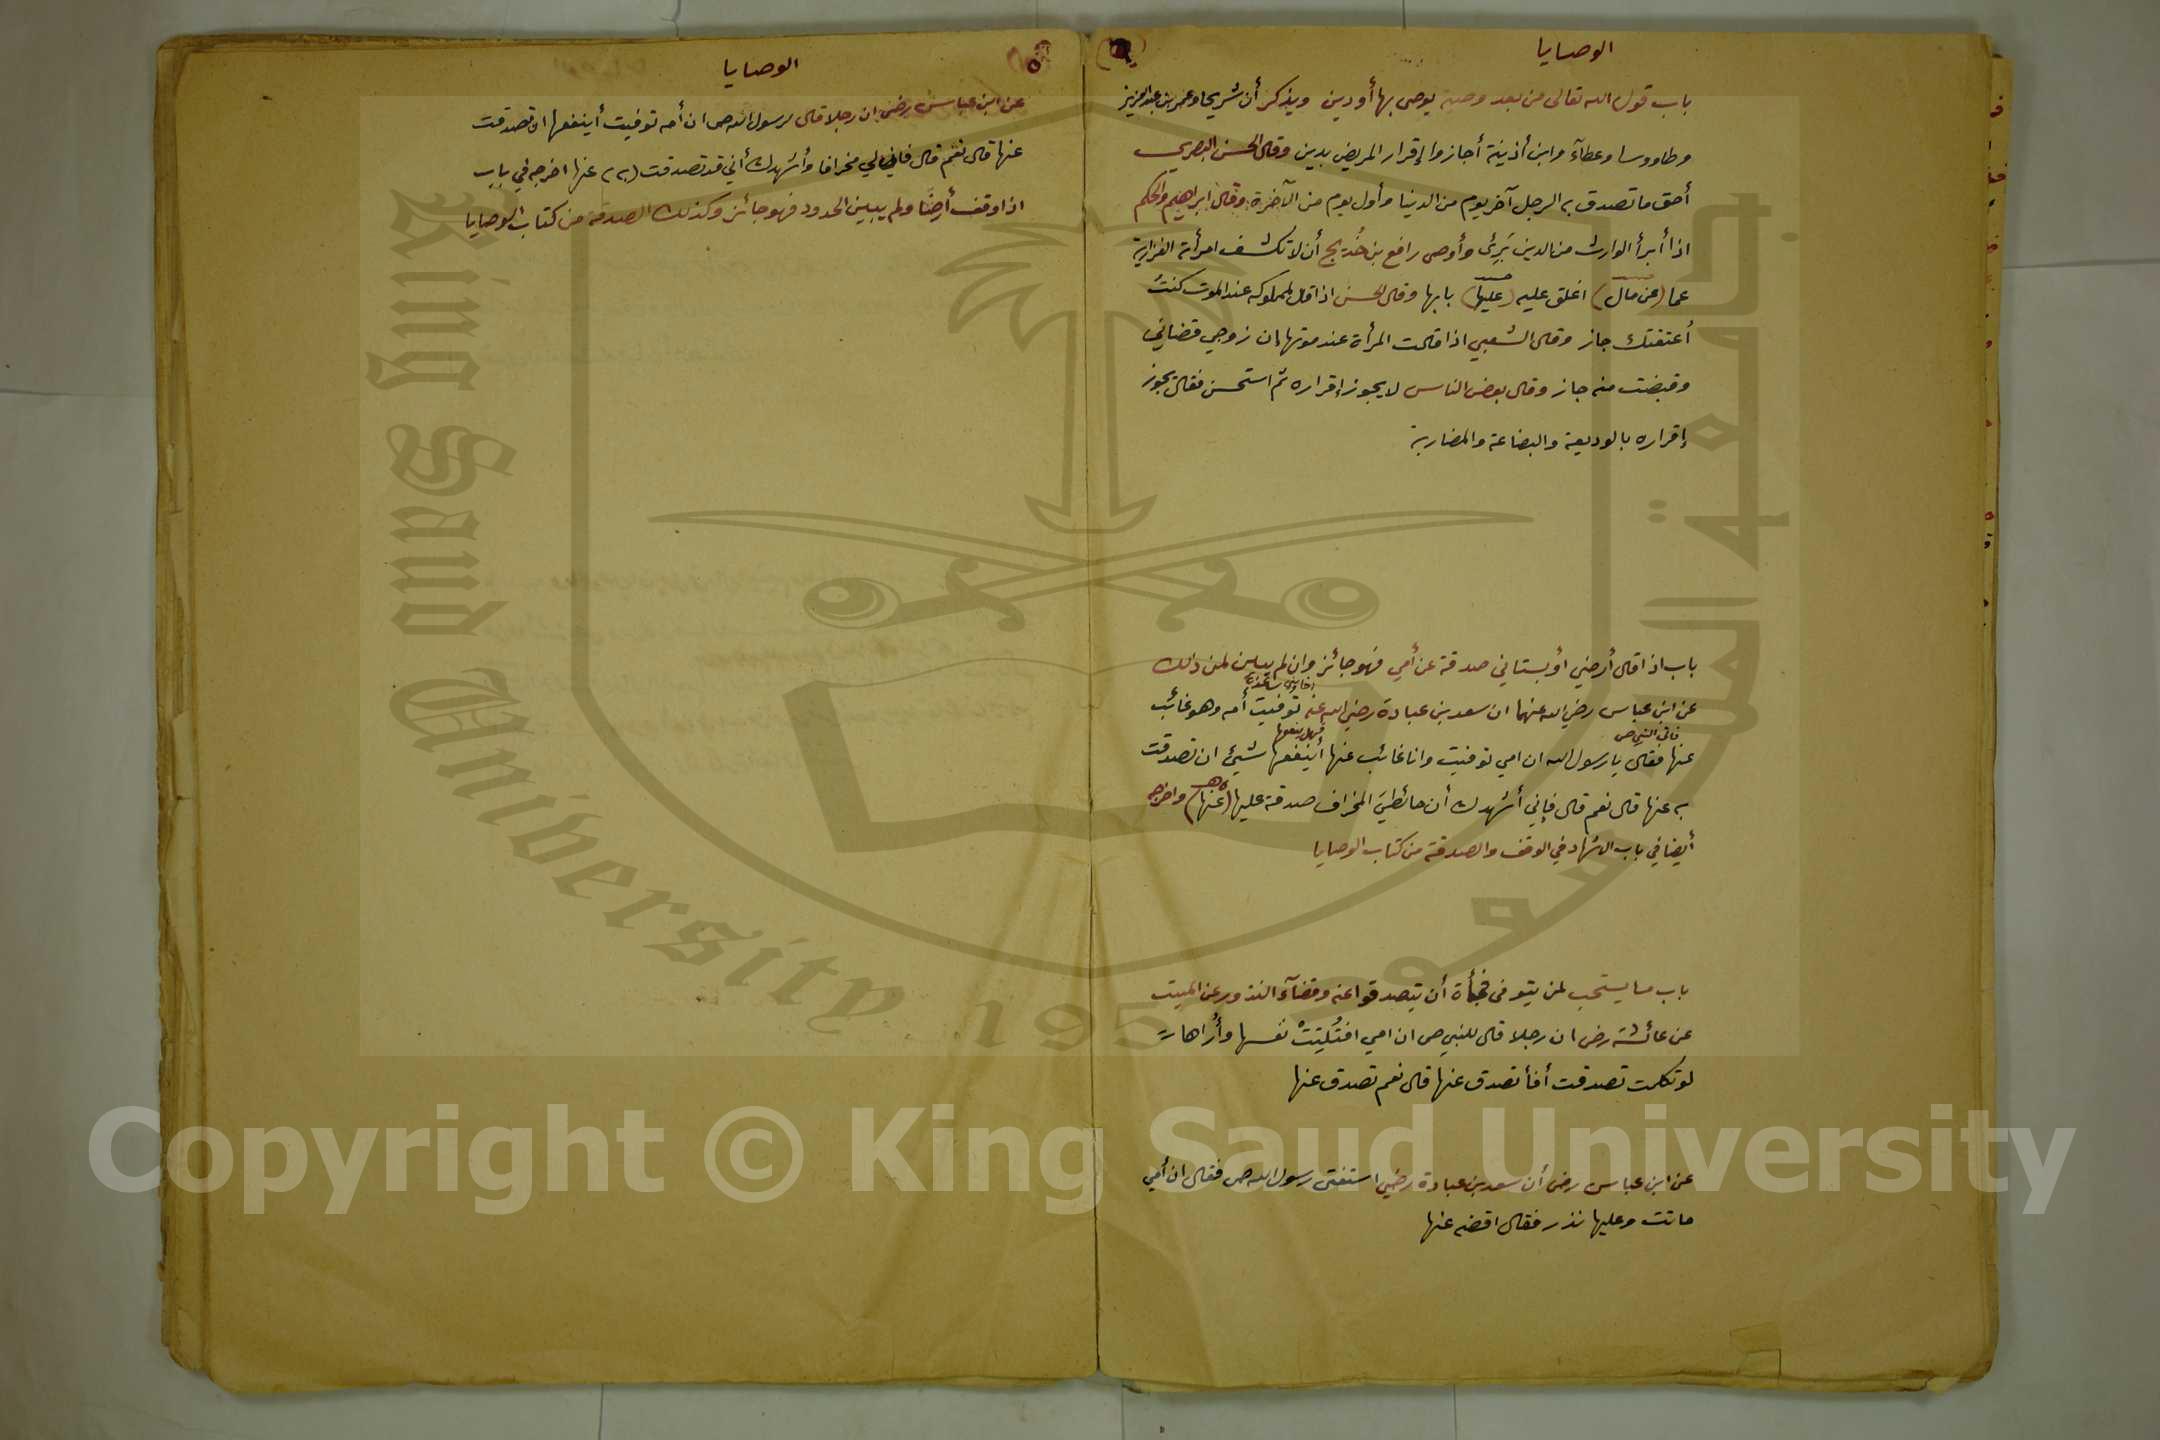 الوصايا
باب قول الله تعالى من بعد وصية يوصى بها أو دين ويذكر أن شريحا وعمر بن عبد العزيز
وطاووسا وعطآء وابن أذينة أجازوا إقرار المريض بدين وقال الحسن البصري
أحق ما تصدق به الرجل آخر يوم من الدنيا وأول يوم من الآخرة وقال ابراهيم والحكم
اذا أبرأ الوارث من الدين بَرِئَ وأوصى رافع بن خُديج أن لا تكشف امرأته الفزارية
عما (عن مال) اغلق عليه (عليها) بابها وقال الحسن اذا قال لمملوكه عند الموت كنت
أعتقتك جاز وقال الشعبي اذا قالت المرأة عند موتها إن زوجي قضاني
وقبضت منه جاز وقال بعض الناس لا يجوز إقراره ثم استحسن فقال يجوز
إقراره بالوديعة والبضاعة والمضاربة
باب اذا قال أرضي أو بستاني صدقة عن أمي فهو جائز وان لم يبين لمن ذلك
اخا بني ساعدة
عن ابن عباس رضي الله عنهما ان سعد بن عبادة رضي الله عنه توفيت أمه وهو غائب
فاتى النبي ص
فهل ينفعها
عنها فقال يا رسول الله ان امي توفيت وانا غائب عنها أينفعها شيئ ان تصدقت
به عنها قال نعم قال فإني أشهدك أن حائطيَ المخراف صدقة عليها (عنها) واخرجه
أيضا في باب الاشهاد في الوقف والصدقة من كتاب الوصايا
باب ما يستحب لمن يتوفى فجأة أن يتصدقوا عنه وقضآء النذور عن الميت
عن عائشة رض ان رجلا قال للنبي ص ان امي افتُلِتَتْ نفسها وأُراها
لو تكلمت تصدقت أفأتصدق عنها قال نعم تصدق عنها
عن ابن عباس رض أن سعد بن عبادة رضي استفتى رسول الله ص فقال ان أمي
ماتت وعليها نذر فقال اقضه عنها
الوصايا
عن ابن عباس رض ان رجلا قال لرسول الله ص ان أمه توفيت أينفعها ان تصدقت
عنها قال نعم قال فان لي مخرافا وأشهدك أني قد تصدقت (به) عنها اخرجه في باب
اذا وقف أرضًا ولم يبين الحدود فهو جائز وكذلك الصدقة من كتاب الوصايا
King Saud University
1957
جامعة الملك سعود
Copyright © King Saud University